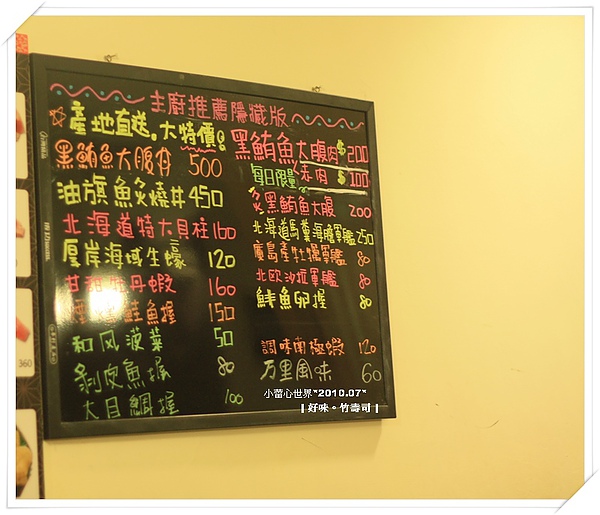 主廚推薦隱藏版
產地直送。大特價!
黑鮪魚大腹丼 500
油旗魚炙燒丼 450
北海道特大貝柱 160
厚岸海域生蠔 120
甘甜牡丹蝦 160
鮭魚握 150
和风菠菜 50
剝皮魚握 80
大目鯛握 100
黑鮪魚大腹肉 $200
每日限量 赤肉 $100
炙黑鮪魚大腹 200
北海道馬糞海膽軍艦 250
廣島產牡蠣軍艦 80
北欧沙拉軍艦 80
鮮魚卵握 80
調味南極蝦 120
万里風味 60
360
小蕾心世界*2010.07*
| 好味。竹壽司 |